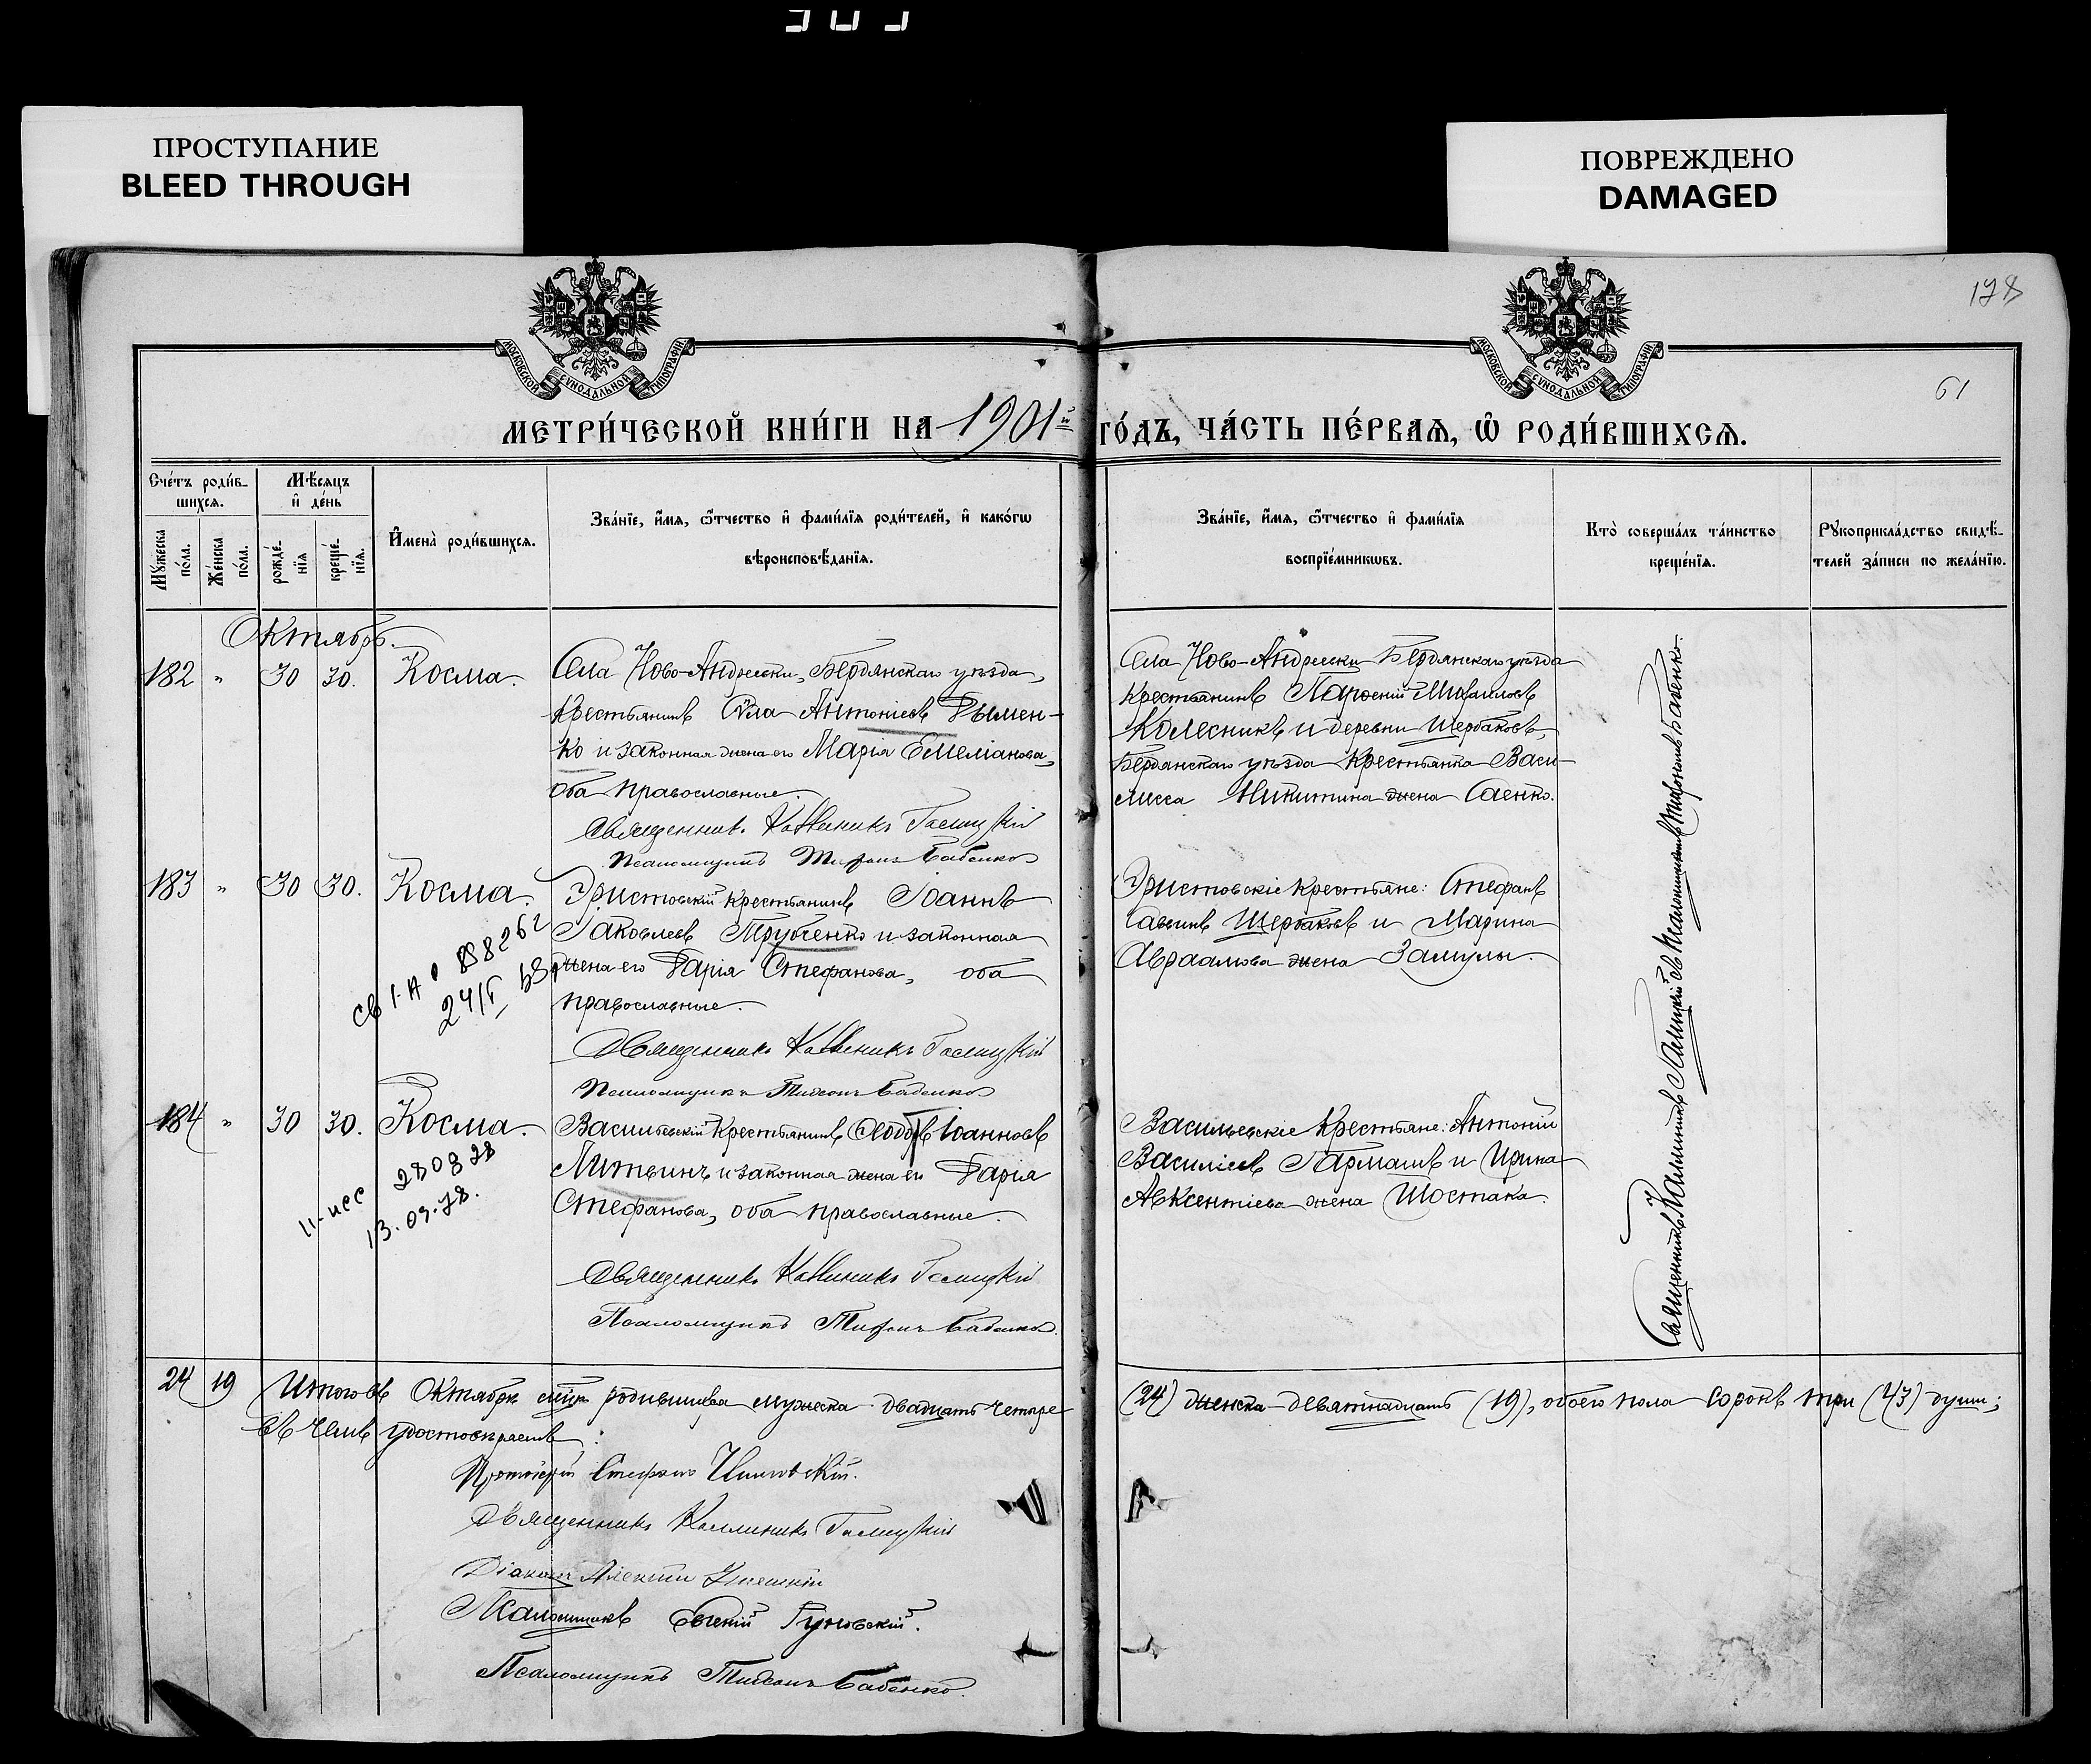 ПРОСТУПАНИЕ
BLEED THROUGH
ПОВРЕЖДЕНО
DAMAGED
178
61
МОСКОВСКОЙ СѴНОДАЛЬНОЙ ТИПОГРАФІИ
МОСКОВСКОЙ СѴНОДАЛЬНОЙ ТИПОГРАФІИ
МЕТРИ́ЧЕСКОЙ КНИ́ГИ НА 1901й ГО́ДЪ, ЧА́СТЬ ПЕ́РВАѦ, Ѿ РОДИ́ВШИХСѦ.
Сче́тъ роди́в-
шихсѧ.
Мꙋ́жеска по́ла.
Же́нска по́ла.
Мѣ́сѧцъ
и҆ де́нь
рожде́-
нїѧ
креще́-
нїѧ.
И҆мена̀ роди́вшихсѧ.
Зва́нїе, и҆́мѧ, ѻ҆́тчество и҆ фами́лїѧ роди́телей, и҆ како́гѡ
вѣроисповѣ́данїѧ.
Зва́нїе, и҆́мѧ, ѻ҆́тчество и҆ фами́лїѧ
воспрїе́мникѡвъ.
Кто̀ соверша́лъ та́инство
креще́нїѧ.
Рꙋкоприкла́дство свидѣ́-
телей за́писи по жела́нїю.
Октябрь.
182 " 30 30. Косма.
Села Ново-Андреевки, Бердянскаго уѣзда,
крестьянинъ Сѵла Антоніевъ Дымен-
ко и законная жена его Марія Емеліанова,
оба православные.
Священникъ Каллиникъ Галицкій
Псаломщикъ Тифонъ Бабенко
Села Ново-Андреевки Бердянскаго уѣзда
крестьянинъ Парѳеній Михаиловъ
Колесникъ и деревни Щербаковъ,
Бердянскаго уѣзда крестьянка Васи-
лисса Никитина жена Саенко.
183 " 30 30. Косма.
Эристовскій крестьянинъ Іоаннъ
Іаковлевъ Трубченко и законная
жена его Дарія Стефанова, оба
православные.
Священникъ Каллиникъ Галицкій
Псаломщикъ Тифонъ Бабенко
Эристовскіе крестьяне: Стефанъ
Саввинъ Щербаковъ и Марина
Авраамова жена Замулы.
184 " 30 30. Косма.
280828
13.03.78.
Васильевскій крестьянинъ Ѳеодоръ Іоанновъ
Литвинъ и законная жена его Дарія
Стефанова, оба православные.
Священникъ Каллиникъ Галицкій
Псаломщикъ Тифонъ Бабенко.
Васильевскіе крестьяне: Антоній
Василіевъ Гармашъ и Ирина
Авксентіева жена Шостака.
Священникъ Каллиникъ Галицкій съ псаломщикомъ Тифономъ Бабенко.
24 19 Итого въ Октябрѣ мѣсѣ родившихся мужеска двадцать четыре (24) женска девятнадцать (19), обоего пола сорокъ три (43) души;
въ чемъ удостовѣряемъ:
Протоіерей Стефанъ
Священникъ Каллиникъ Галицкій
Діаконъ Алексій
Псаломщикъ Евгеній
Псаломщикъ Тифонъ Бабенко.